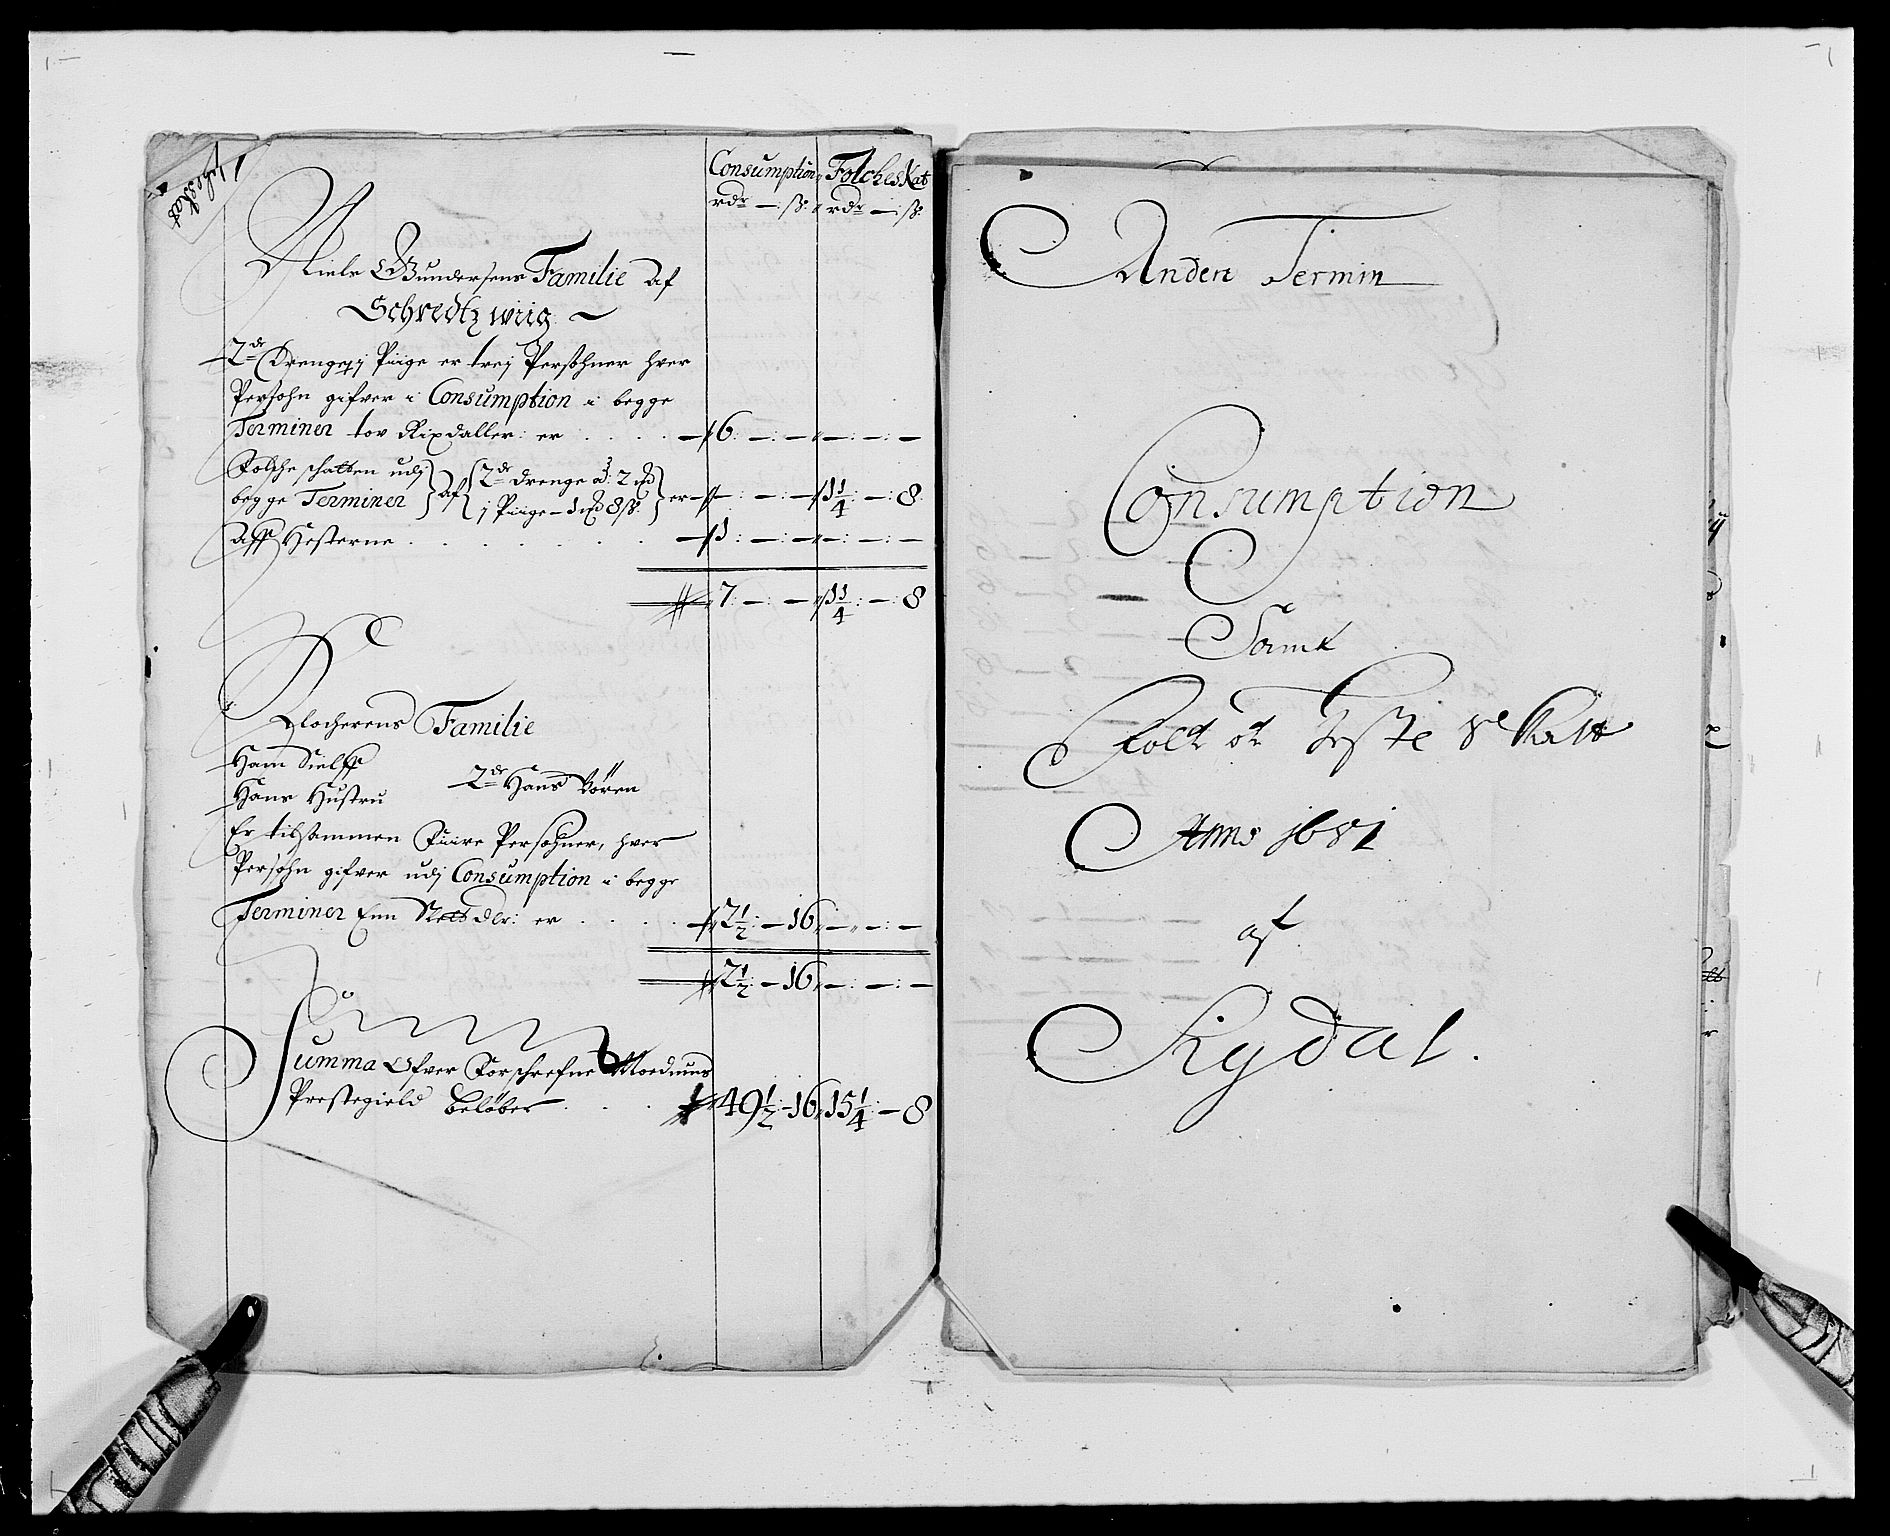 Consumption FolchesKat
rdr — : ß: rdr — : ß:
Niels Gundersens Familie af
Schredtzwiig
2de Drenge j Piige er trej Persohner hver
Persohn gifver i Consumption i begge
Terminer tov Rixdaller: er . . . . 6: — : — — : — : —
Folcheschatten udj begge Terminer af 2de Drenge a: 2 rd j Piige – 1 rd 8 ß: er — : — : — 11/4 : — : 8
Aff Hesterne . . . . . . 1 : — : — — : — : —
7: — : — 11/4 : — : 8
Klocherens Familie
Ham Sielff
Hans Hustru 2de Hans Børen
Er tilsammen Fiire Persohner, hver
Persohn gifver udj Consumption i begge
Terminer Enn Slettdlr: er . . . . 2 1/2: — 16 — : — : —
2 1/2: — 16 — : — : —
Summa Ofver Forschrefne Moedums
Prestegield beløber . . . 49 1/2: — 16 15 1/4: — 8
Anden Termin
Consumption
Samt
Folck oc Heste Skatt
Anno 1681
af
Rygdal.